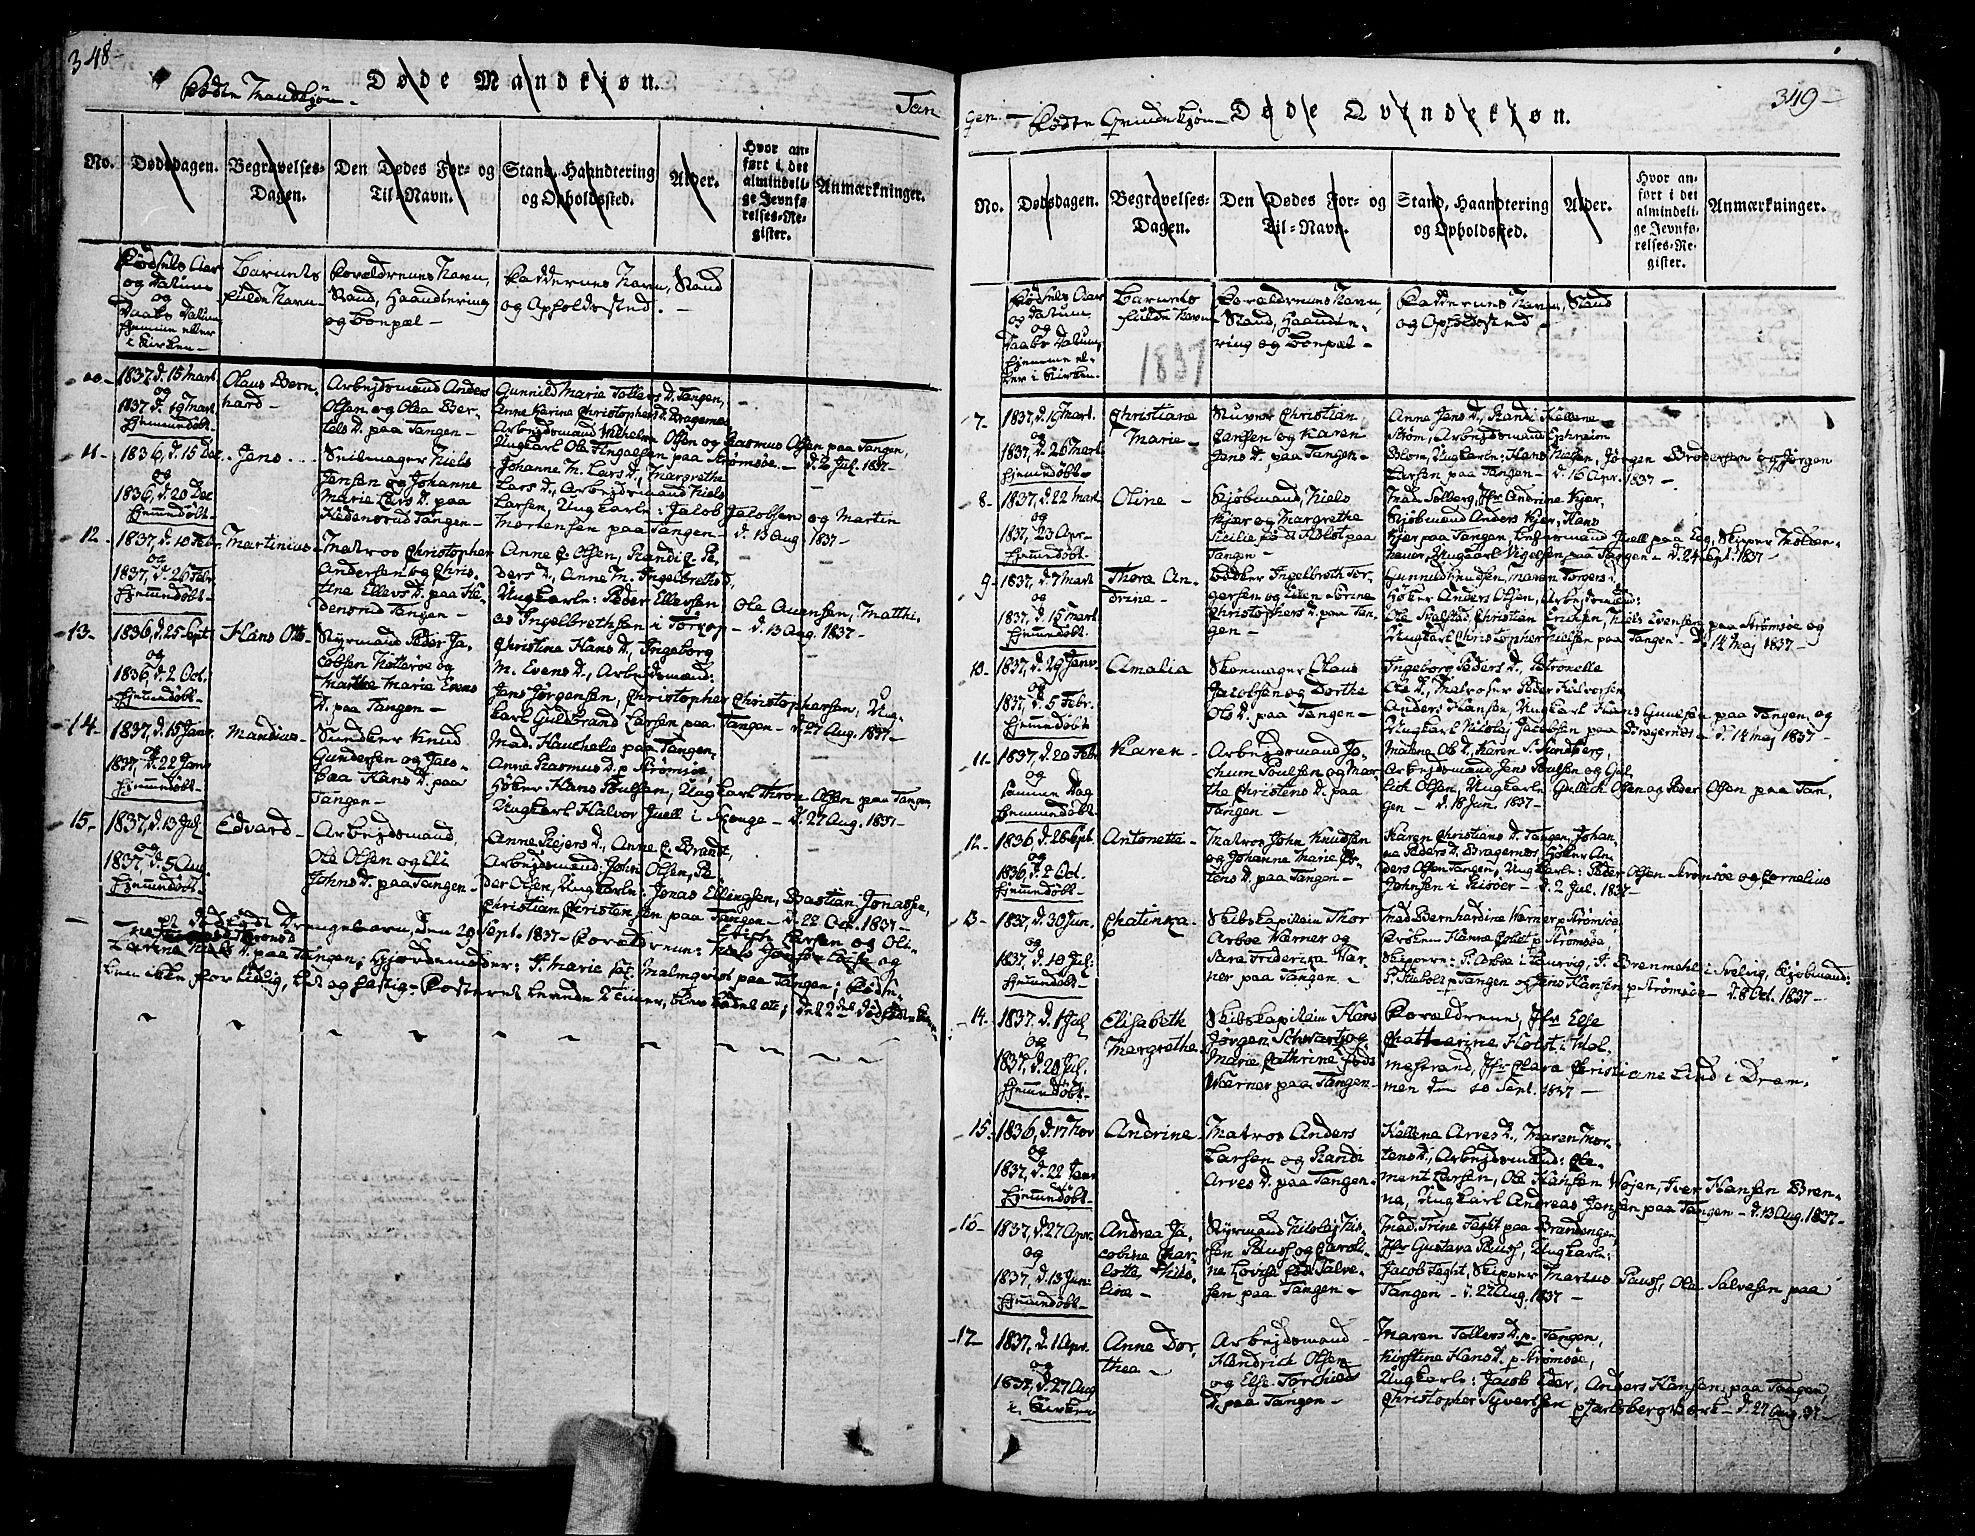 348-
Fødte Mandkjøn- Døde Mandkjøn.
Tan
No.
Dødsdagen.
Begravelses-
Dagen.
Den Dødes For- og
Til-Navn.
Stand, Haandtering
og Opholdssted.
Alder.
Hvor an-
ført i det
almindeli-
ge Jevnfø-
relses-Re-
gister.
Anmærkninger.
Fødsels Aar
og Datum
og
Daabs Datum
hjemme eller
i Kirken-
Barnets
fulde Navn-
Forældrenes Navn,
Stand, Haandtering
og Boepæl-
Faddernes Navn, Stand
og Opholdssted. -
10-
1837, d. 15 Mart
og
1837 d. 19 Mart
hjemmedøbt-
Olaus Bern
hard-
Arbejdsmand Anders
Olsen og Olea Ber-
tels D. paa Tangen-
Gunnild Marie Tollers D. Tangen,
Anne Karine Christophers D. Bragernes
Arbejdsmand Wilhelm Olsen og Rasmus Olsen paa Tangen,
Ungkarl Ole Fingalsen paa Strømsøe.- d. 2 Jul. 1837-
11-
1836, d. 15 Dec
og
1836, d. 20 Dec
hjemmedøbt-
Jens-
Seilmager Niels
Jensen og Johanne
Marie Lars D. paa
Hedensrud Tangen-
Johanne M. Lars D., Margrethe
Lars D., Arbejdsmand Niels
Larsen, Ungkarle: Jacob Jacobsen og Martin
Mortensen paa Tangen- d. 13 Aug 1837-
12-
1837, d. 10 Febr
og
1837, d. 26 Febr.
hjemmedøbt-
Martinius-
Matros Christopher
Andersen og Chris-
tine Ellevs D. paa He-
densrud Tangen-
Anne C. Olsen, Randi C. Pe-
ders D., Anne M. Ingelbreths D,
Ungkarle: Peder Ellevsen
Ole Avensen, Matthi-
as Ingelbrethsen i Torkop- d. 13 Aug. 1837-
13-
1836, d. 25 Sept
og
1836, d. 2 Oct.
hjemmedøbt-
Hans Otto
Styrmand Peder Ja-
cobsen Kotterøe og
Marthe Marie Evens
D. paa Tangen-
Christina Hans D., Ingeborg
M. Evens D., Arbejdsmænd:
Jens Jørgensen, Christopher Christophersen, Ung-
karl Guldbrand Larsen paa Tangen- d. 27 Aug. 1837-
14-
1837, d. 15 Janr.
og
1837, d. 22 Janr
hjemmedøbt-
Mandius-
Snedker Knud
Gundersen og Jaco-
bæa Hans D. paa
Tangen-
Mad. Hauchelie paa Tangen.
Anne Rasmus D. p. Strømsøe
Høker Hans Poulsen, Ungkarl Thron Olsen paa Tangen,
Ungkarl Halvor Juell i Skouge- d. 27 Aug. 1837-
15-
1837, d. 13 Julj
og
1837, d. 5 Aug.
hjemmedøbt-
Edvard-
Arbejdsmand
Ole Olsen og Eli
Johns D. paa Tangen-
Anne Rejers D., Anne C. Brandt,
Arbejdsmand John Olsen, Pe-
der Olsen, Ungkarle: Jonas Ellingsen, Bastian Jonassen,
Christian Christensen paa Tangen- d. 22 Oct. 1837-
- 2 dødfødte Drengebørn, den 29 Sept. 1837- Forældrene: Larsen og Oli-
D. paa Tangen; Gjordemoder: J. Marie Malmqvist paa Tangen; Føds-
len ikke for tidlig, let og hastig-
349-
gen- Fødte Qvindekjøn- Døde Qvindekjøn.
No.
Dødsdagen.
Begravelses-
Dagen.
Den Dødes For- og
Til-Navn.
Stand, Haandtering
og Opholdssted.
Alder.
Hvor an-
ført i det
almindeli-
ge Jevnfø-
relses-Re-
gister.
Anmærkninger.
Fødsels Aar
og Datum
og
Daabs Datum,
hjemme el-
ler i Kirken.
Barnets
fulde Navn
1837
Forældrenes Navn,
Stand, Haandte-
ring og Boepæl-
Faddernes Navn, Stand
og Opholdssted-
7-
1837, d. 16 Mart.
og
1837, d. 26 Mart
hjemmedøbt-
Christiane
Marie-
Stuver Christian
Jansen og Karen
Jens D., paa Tangen-
Anne Jens D., Randi Hellene
Strøm, Arbejdsmand Ephraim
Blom, Ungkarle: Hans Nielsen, Jørgen Brodersen og Jørgen
Larsen paa Tangen- d. 16 Apr. 1837-
8-
1837, d. 22 Mart
og
1837, d. 23 Apr-
hjemmedøbt-
Oline-
Kjøbmand, Niels
Kjær og Margrethe
Cicilie fød Holst paa
Tangen-
Mad. Solberg, Jfr Andrine Kjær,
Kjøbmand Anders Kjær, Hans
Kjær paa Tangen, Juell paa Eeg, Skipper Molden-
hauer, Ungkarl Vigelsen paa Tangen- d. 24 Sept. 1837-
9
1837, d. 7 Mart
og
1837, d. 15 Mart
hjemmedøbt.
Thora An-
drine-
Bødker Ingelbreth Tor-
gersen og Elen Sørine
Christophers D. paa Tan-
gen-
Gunnild Knudsen, Maren Torgers:
Høker Anders Olsen, Arbejdsmænd:
Ole Svalstad, Christian Eriksen, Niels Evensen paa Strømsøe og
Ungkarl Christopher Nielsen paa Tangen- d. 14 Maj 1837-
10-
1837, d. 29 Janr.
og
1837, d. 5 Febr.
hjemmedøbt
Amalia
Skomager Olaus
Jacobsen og Dorthe
Ols D. paa Tangen-
Ingeborg Peders D., Petronelle
Ole D., Matroser Peder Halvorsen
Anders Hansen, Ungkarl Hans Gundsen paa Tangen, og
Ungkarl Nicolaj Jacobsen paa Bragernes- d. 14 Maj 1837-
11-
1837, d. 20 Febr
og
samme Dag
hjemmedøbt
Karen-
Arbejdsmand Jo-
chum Poulsen og Mar-
the Christens D. paa
Tangen-
Malene Ols D., Karen S. Sundberg,
Arbejdsmand Jens Poulsen og Gul-
lich Olsen, Ungkarle Gullich Olsen og Peder Olsen paa Tan,
gen- d. 18 Jun. 1837-
12-
1836, d. 26 Sept.
og
1836, d. 2 Oct.
hjemmedøbt-
Antonette-
Matros John Knudsen
og Johanne Marie Pe-
ters D. paa Tangen-
Karen Christians D. Tangen, Johan-
ne Peders D. Bragernæs, Høker An-
ders Olsen Tangen, Ungkarle: Peder Olsen Strømsøe og Cornelius
Johnsen i Risøer- d. 2 Jul. 1837-
13-
1837, d. 30 Jun.
og
1837, d. 10 Jul:
hjemmedøbt-
Chatinka-
Skibskapitain Thor
Arboe Værner og
Sara Fridericka Vær-
ner paa Tangen-
Mad Bernhardine Værner p Strømsøe,
Frøken Hanne Holst p Strømsøe,
Skippere: P. Arboe i Laurvig, J. Brenmehl i Svelvig, Kjøbmænd:
P. Kiebolt p Tangen og Jens Hansen p Strømsøe- d. 8 Oct. 1837-
14-
1837. d. 1 Julj
og
1837, d. 20 Jul.
hjemmedøbt-
Elisabeth
Margrethe.
Skibskapitain Hans
Jørgen Schwartz og
Marie Cathrine fød
Wærner paa Tangen-
Forældrene, Jfr Else
Chatharine Holst i Hol-
mestrand, Jfr Clara Christiane Lind i Dram-
men den 10 Sept. 1837-
15-
1836, d. 17 Nov
og
1837, d. 22 Janr
hjemmedøbt-
Andrine-
Matros Anders
Larsen og Randi
Arves D. paa Tangen-
Hellena Arves D., Maren Mor-
tens D., Arbejdsmænd: Cle-
ment Larsen, Ole Hansen Wojen, Iver Hansen Bren-
na, Ungkarl Andreas Jensen paa Tangen- d. 13 Aug. 1837-
16-
1837, d. 27 Apr.
og
1837, d. 13 Jun:
hjemmedøbt-
Andrea Ja-
cobine Char-
lotte Niko-
line-
Styrmand Nicolaj Nis-
sen Pauss og Caroli-
ne Lovise fød Salve-
sen paa Tangen-
Mad. Trine Teght paa Brandengen,
Jfr Gustava Pauss, Ungkarle:
Jacob Teght, Skipper Marius Pauss, Ole Salvesen paa
Tangen- d. 27 Aug. 1837-
17
1837, d. 1 Apr.
og
1837, d. 27 Aug
i Kirken
Anne Dor-
thea-
Arbejdsmand-
Hendrich Olsen
og Else Torchild
D. paa Tangen-
Maren Tollers D. p. Tangen,
Kirstine Hans D. p Strømsøe,
Ungkarle: Jacob Eder, Anders Hansen paa Tangen,
Christopher Syvertsen p Jarlsbergværk- d. 27 Aug. 37-